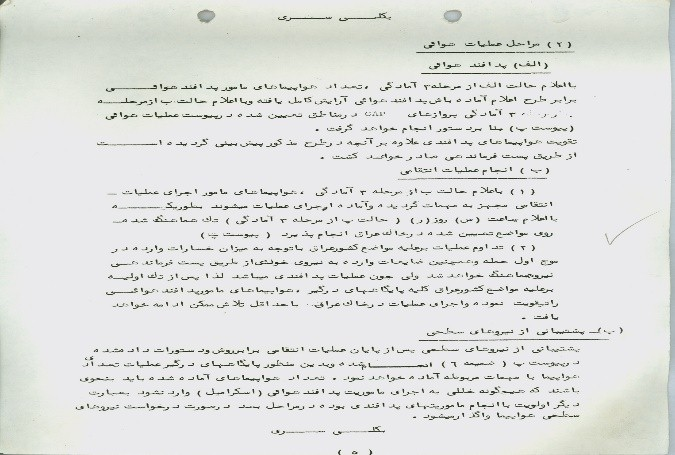 بکلـــی ســـری
(۲) مراحل عملیات هوائی
(الف) پدافند هوائی
بااعلام حالت الف از مرحله ۳ آمادگی ، تعداد هواپیماهای مامور پدافند هوائــی
برابر طرح اعلام آماده باش پدافند هوائی آرایش کامل یافته وبااعلام حالت ب ازمرحلــه
۳ آمادگی پروازهای CAP درمناطق تعیین شده درپیوست عملیات هوائی
(پیوست پ) بنا بر دستور انجام خواهد گرفت .
تقویت هواپیماهای پدافندی علاوه برآنچه درطرح مذکور پیش بینی گردیده اســـت
از طریق پست فرماندهی صادر خواهد گشت .
(ب) انجام عملیات انتقامی
(۱) بااعلام حالت ب از مرحله ۳ آمادگی ، هواپیماهای مامور اجرای عملیات
انتقامی مجهز به مهمات گردیده وآماده اجرای عملیات میشوند بطوریکــه
بااعلام ساعت (س) روز (ر) (حالت پ از مرحله ۳ آمادگی) تک هماهنگ شده
روی مواضع تعیین شده درخاک عراق انجام پذیرد (پیوست پ)
(۲) تداوم عملیات برعلیه مواضع کشورعراق باتوجه به میزان خسارات وارده در
موج اول حمله وهمچنین ضایعات وارده به نیروی خودی از طریق پست فرماندهــی
نیروهماهنگ خواهد شد ولی چون عملیات پدافندی میباشد لذا پس از تک اولیــه
برعلیه مواضع کشورعراق کلیه پایگاههای درگیر ، هواپیماهای مامورپدافند هوائــی
راتقویت نموده واجرای عملیات درخاک عراق باحداقل تلاش ممکن ادامه خواهد
یافت .
پشتیبانی از نیروهای سطحی
پشتیبانی از نیروهای سطحی پس از پایان عملیات انتقامی برابر روش ودستورات داده شده
درپیوست پ (ضمیمه ۶) شده وبدین منظور پایگاههای درگیر عملیات تعدادی
هواپیما با مهمات مربوطه آماده خواهد نمود . تعداد هواپیماهای آماده شده باید بنحوی
باشند که هیچگونه خللی به اجرای ماموریت پدافند هوائی (اسکرامبل) وارد نشود بعبارت
دیگر اولویت باانجام ماموریتهای پدافندی بوده درمراحل بعد درصورت درخواست نیروهای
سطحی هواپیما واگذار میشود .
بکلـــی ســـری
(۵)